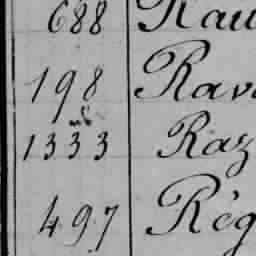 688 Rau
198 Rav
1333 Raz
497 Rég